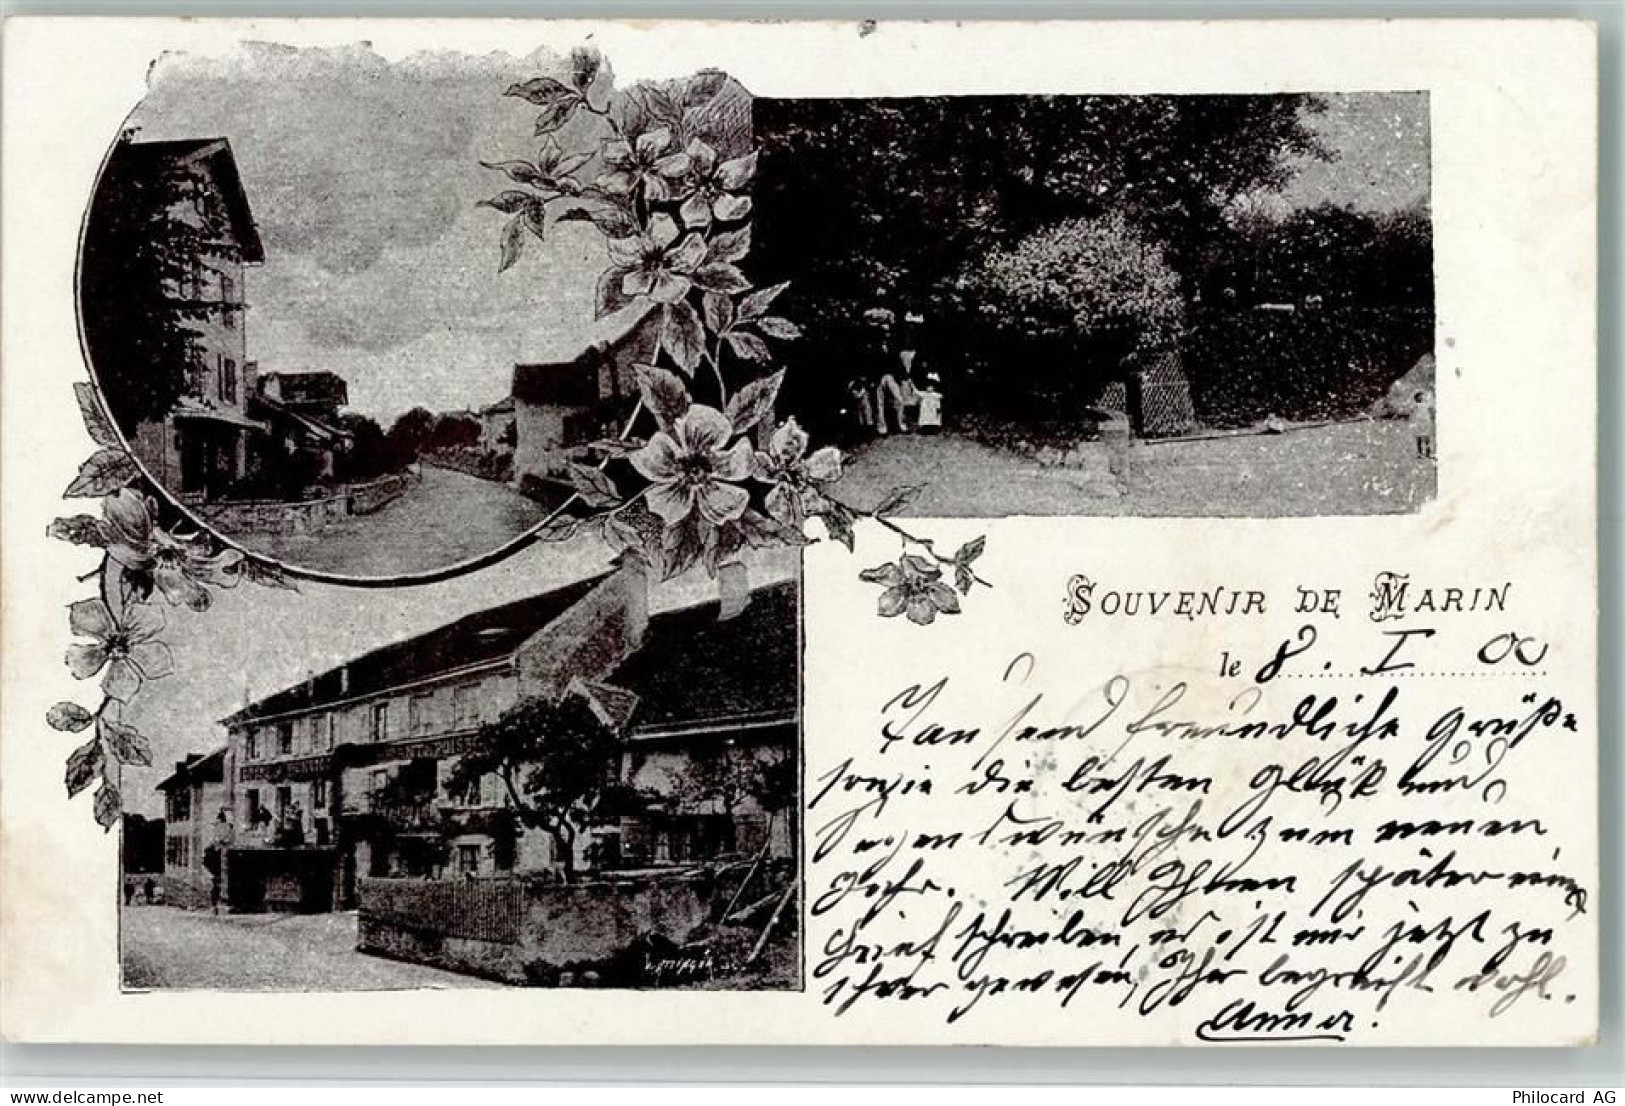 SOUVENIR DE MARIN
le 8. I 00
Tausend freundliche Grüße
sowie die besten Glück und
Segenswünsche zum neuen
Jahr. Will Ihnen später einen
Brief schreiben, es ist mir jetzt zu
schwer gewesen, Ihr begreift wohl.
Anna.
www.delcampe.net
Philocard AG